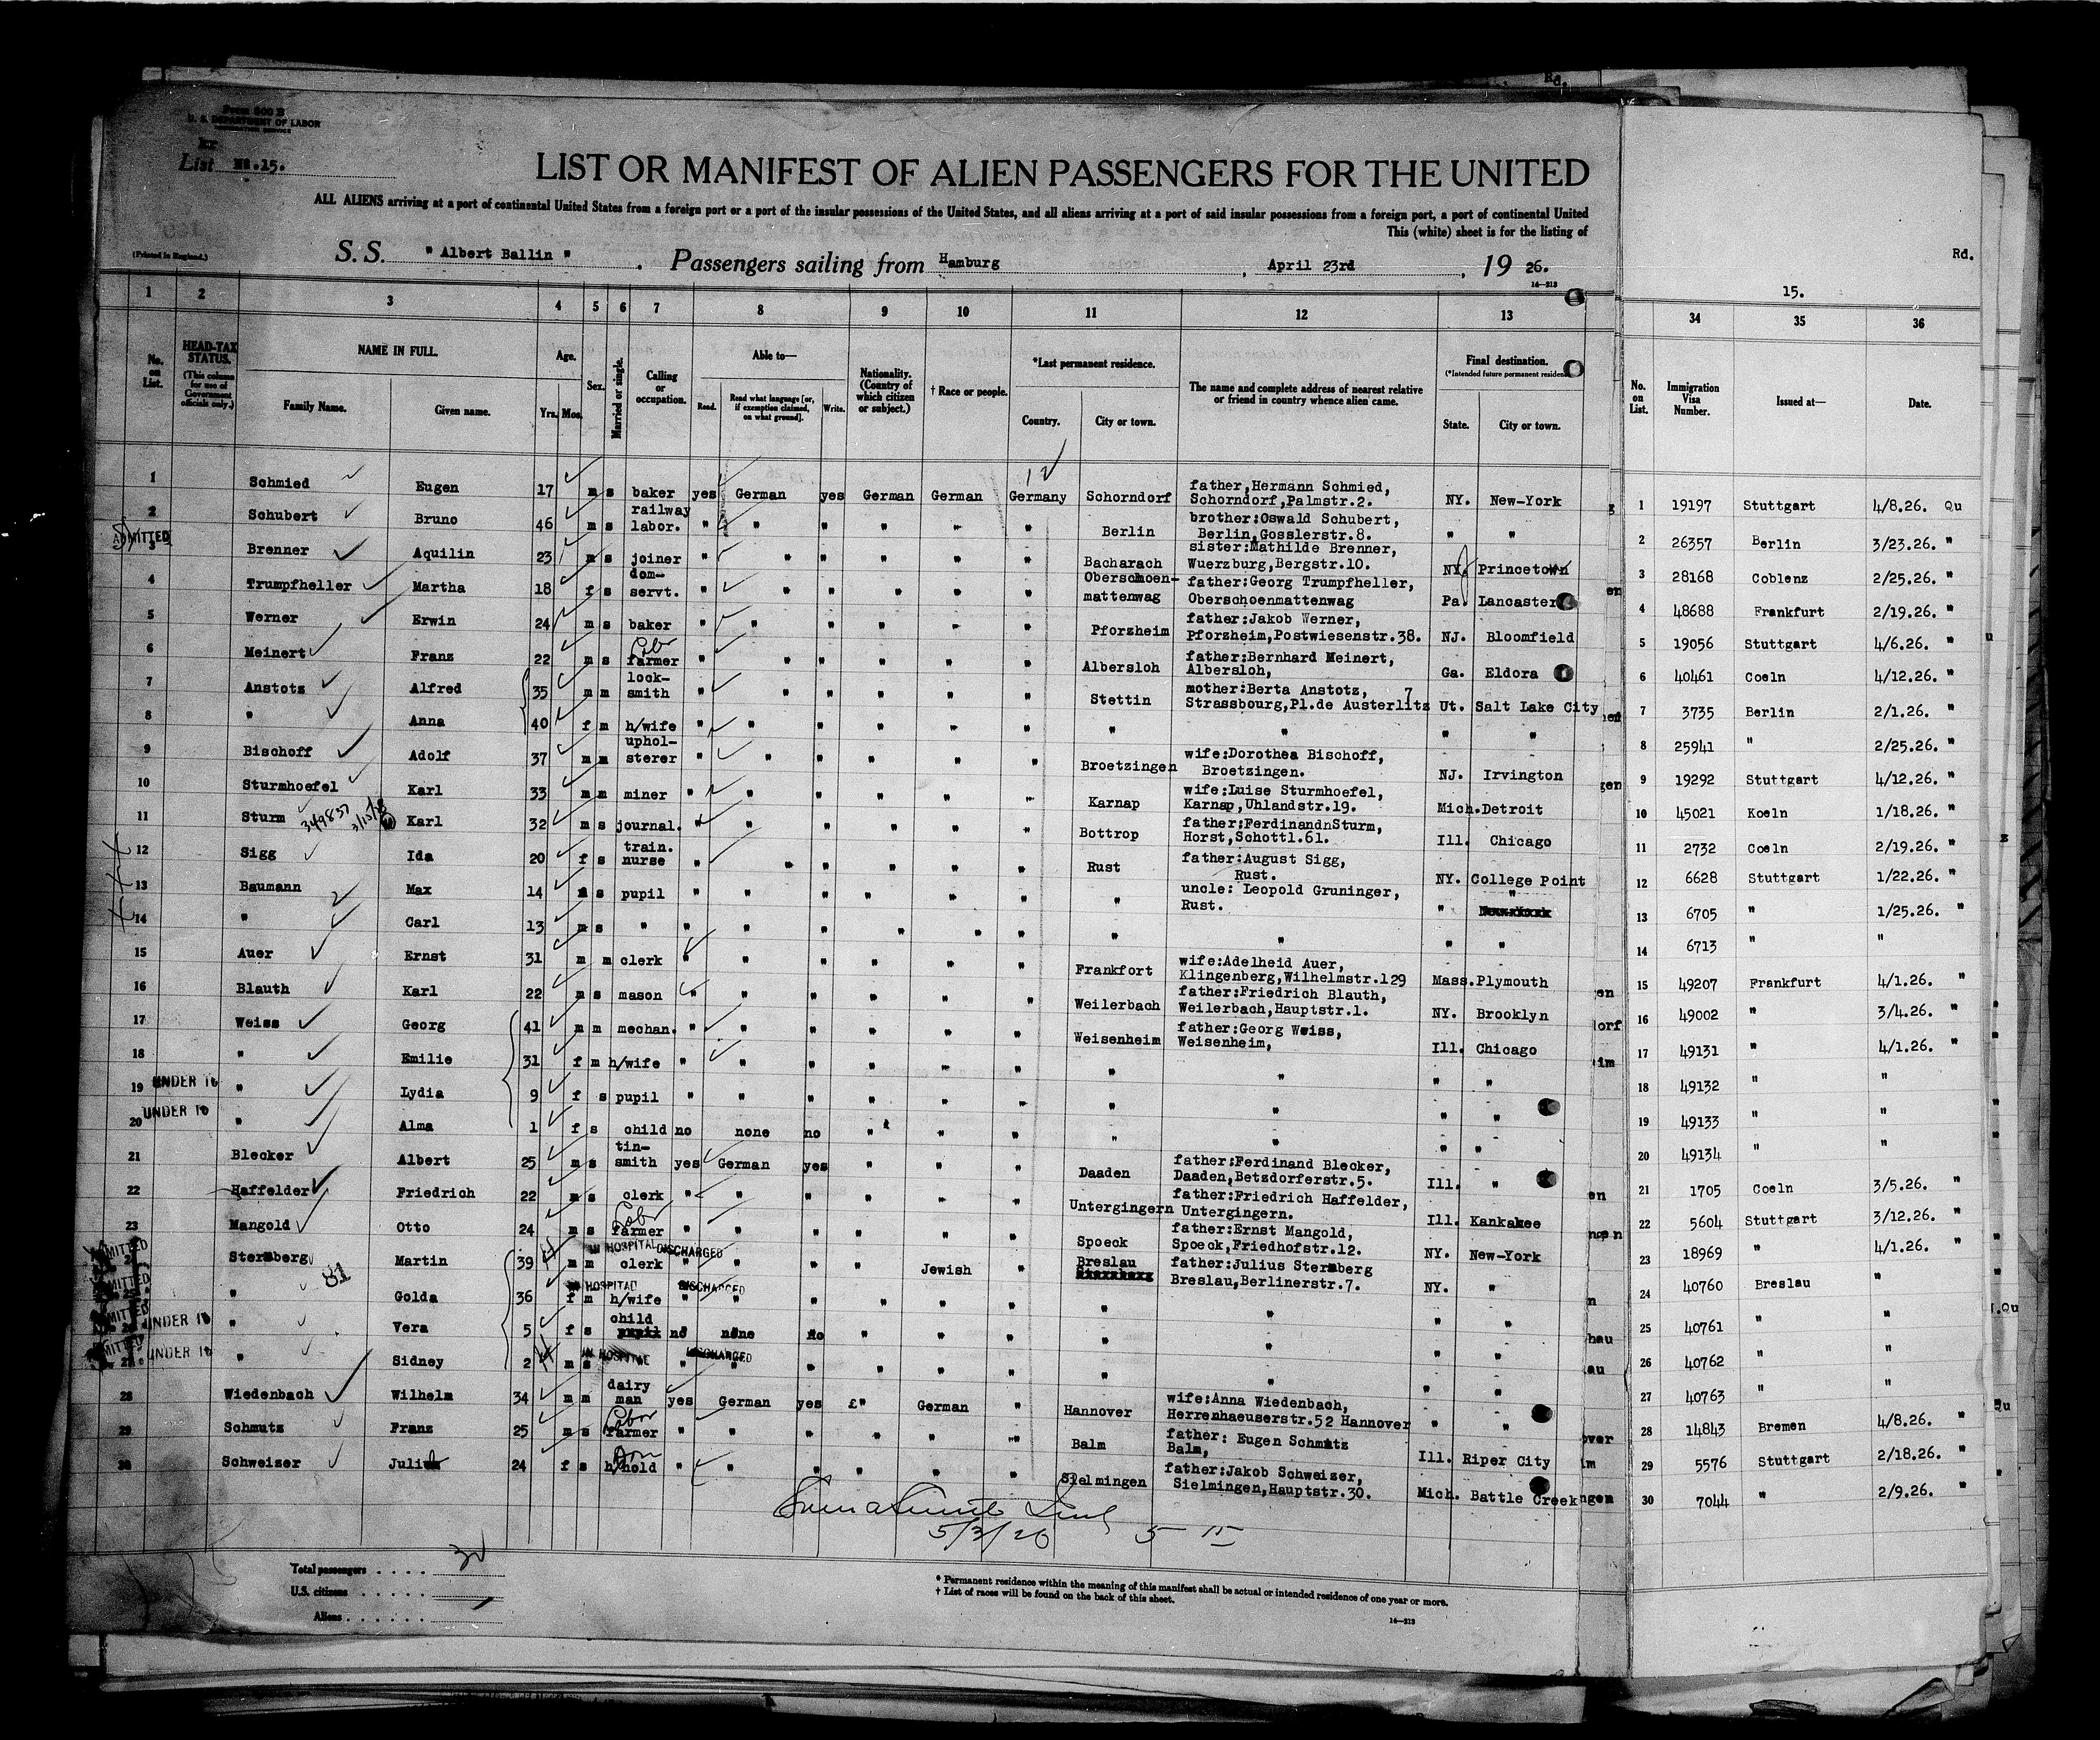 Rd.
Form 500 B
U. S. DEPARTMENT OF LABOR
IMMIGRATION SERVICE
List No.15.
LIST OR MANIFEST OF ALIEN PASSENGERS FOR THE UNITED
ALL ALIENS arriving at a port of continental United States from a foreign port or a port of the insular possessions of the United States, and all aliens arriving at a port of said insular possessions from a foreign port, a port of continental United
This (white) sheet is for the listing of
(Printed in England.)
S. S. " Albert Ballin " . Passengers sailing from Hamburg , April 23rd , 19 26.
14—213
Rd.
15.
1 2 3 4 5 6 7 8 9 10 11 12 13 34 35 36
No. on List.
HEAD-TAX STATUS. (This column for use of Government officials only.)
NAME IN FULL. Family Name. Given name.
Age. Yrs. Mos.
Sex.
Married or single.
Calling or occupation.
Able to— Read. Read what language [or, if exemption claimed, on what ground]. Write.
Nationality. (Country of which citizen or subject.)
† Race or people.
*Last permanent residence. Country. City or town.
The name and complete address of nearest relative or friend in country whence alien came.
Final destination. (*Intended future permanent residence) State. City or town.
No. on List. Immigration Visa Number. Issued at— Date.
1 Schmied Eugen 17 m s baker yes German yes German German Germany Schorndorf father,Hermann Schmied, Schorndorf,Palmstr.2. NY. New-York 1 19197 Stuttgart 4/8.26. Qu
2 Schubert Bruno 46 m s railway labor. " " " " " " Berlin brother:Oswald Schubert, Berlin,Gosslerstr.8. " " 2 26357 Berlin 3/23.26. "
ADMITTED
3 Brenner Aquilin 23 m s joiner " " " " " " Bacharach sister:Mathilde Brenner, Wuerzburg,Bergstr.10. NY. Princetown 3 28168 Coblenz 2/25.26. "
4 Trumpfheller Martha 18 f s dom- servt. " " " " " " Oberschoen- mattenwag father:Georg Trumpfheller, Oberschoenmattenwag Pa. Lancaster 4 48688 Frankfurt 2/19.26. "
5 Werner Erwin 24 m s baker " " " " " " Pforzheim father:Jakob Werner, Pforzheim,Postwiesenstr.38. NJ. Bloomfield 5 19056 Stuttgart 4/6.26. "
6 Meinert Franz 22 m s farmer " " " " " " Albersloh father:Bernhard Meinert, Albersloh, Ga. Eldora 6 40461 Coeln 4/12.26. "
7 Anstotz Alfred 35 m m lock- smith " " " " " " Stettin mother:Berta Anstotz, 7 Strassbourg,Pl.de Austerlitz Ut. Salt Lake City 7 3735 Berlin 2/1.26. "
8 " Anna 40 f m h/wife " " " " " " " " " " 8 25941 " 2/25.26. "
9 Bischoff Adolf 37 m m uphol- sterer " " " " " " Broetzingen wife:Dorothea Bischoff, Broetzingen. NJ. Irvington 9 19292 Stuttgart 4/12.26. "
10 Sturmhoefel Karl 33 m m miner " " " " " " Karnap wife:Luise Sturmhoefel, Karnap,Uhlandstr.19. Mich. Detroit 10 45021 Koeln 1/18.26. "
11 Sturm 349837 Karl 32 m s journal. " " " " " " Bottrop father:FerdinandnSturm, Horst,Schottl.61. Ill. Chicago 11 2732 Coeln 2/19.26. "
12 Sigg Ida 20 f s train. nurse " " " " " " Rust father:August Sigg, Rust. NY. College Point 12 6628 Stuttgart 1/22.26. "
13 Baumann Max 14 m s pupil " " " " " " " uncle: Leopold Gruninger, Rust. " " 13 6705 " 1/25.26. "
14 " Carl 13 m s " " " " " " " " " " " 14 6713 " "
15 Auer Ernst 31 m m clerk " " " " " " Frankfort wife:Adelheid Auer, Klingenberg,Wilhelmstr.129 Mass. Plymouth 15 49207 Frankfurt 4/1.26. "
16 Blauth Karl 22 m s mason " " " " " " Weilerbach father:Friedrich Blauth, Weilerbach,Hauptstr.1. NY. Brooklyn 16 49002 " 3/4.26. "
17 Weiss Georg 41 m m mechan. " " " " " " Weisenheim father:Georg Weiss, Weisenheim, Ill. Chicago 17 49131 " 4/1.26. "
18 " Emilie 31 f m h/wife " " " " " " " " " " 18 49132 " "
19 UNDER 16 " Lydia 9 f s pupil " " " " " " " " " " 19 49133 " "
20 UNDER 16 " Alma 1 f s child no none no " " " " " " " 20 49134 " "
21 Blecker Albert 25 m s tin- smith yes German yes " " " Daaden father:Ferdinand Blecker, Daaden,Betzdorferstr.5. Ill. " 21 1705 Coeln 3/5.26. "
22 Haffelder Friedrich 22 m s clerk " " " " " " Untergingern father:Friedrich Haffelder, Untergingern. Ill. Kankakee 22 5604 Stuttgart 3/12.26. "
23 Mangold Otto 24 m s farmer " " " " " " Spoeck father:Ernst Mangold, Spoeck,Friedhofstr.12. NY. New-York 23 18969 " 4/1.26. "
ADMITTED Sternberg 81 Martin 39 m m IN HOSPITAL DISCHARGED clerk " " " " Jewish " Breslau father:Julius Sternberg Breslau,Berlinerstr.7. NY. " 24 40760 Breslau "
ADMITTED " Golda 36 f m IN HOSPITAL DISCHARGED h/wife " " " " " " " " " " 25 40761 " "
ADMITTED UNDER 16 " Vera 5 f s child no none no " " " " " " " 26 40762 " "
ADMITTED UNDER 16 " Sidney 2 m s IN HOSPITAL DISCHARGED " " " " " " " " " " 27 40763 " "
28 Wiedenbach Wilhelm 34 m m dairy man yes German yes " German " Hannover wife:Anna Wiedenbach, Herrenhaeuserstr.52 Hannover " " 28 14843 Bremen 4/8.26. "
29 Schmutz Franz 25 m s Labor farmer " " " " " " Balm father: Eugen Schmutz Balm, Ill. Riper City 29 5576 Stuttgart 2/18.26. "
30 Schweizer 24 f s h/hold " " " " " " Sielmingen father:Jakob Schweizer, Sielmingen,Hauptstr.30. Mich. Battle Creek 30 7044 " 2/9.26. "
5/3/26
Total passengers . . . . 30
U.S. citizens . . . . .
Aliens . . . . . .
* Permanent residence within the meaning of this manifest shall be actual or intended residence of one year or more.
† List of races will be found on the back of this sheet.
14—213